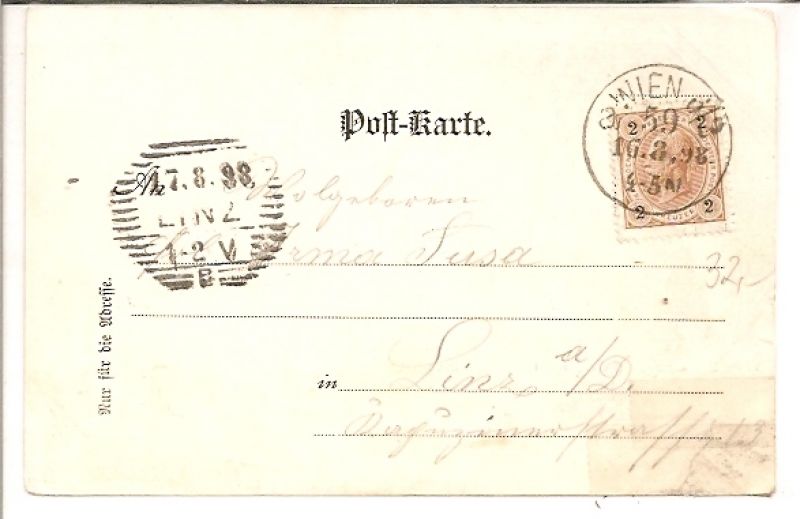 Post-Karte.
WIEN
59
16.8.98
2 2
2 2
An
17.8.98
LINZ
1-2 V
B
Wolgeboren
Irma Susa
32,-
in Linz a/D.
Kapuzinerstrasse
Nur für die Adresse.